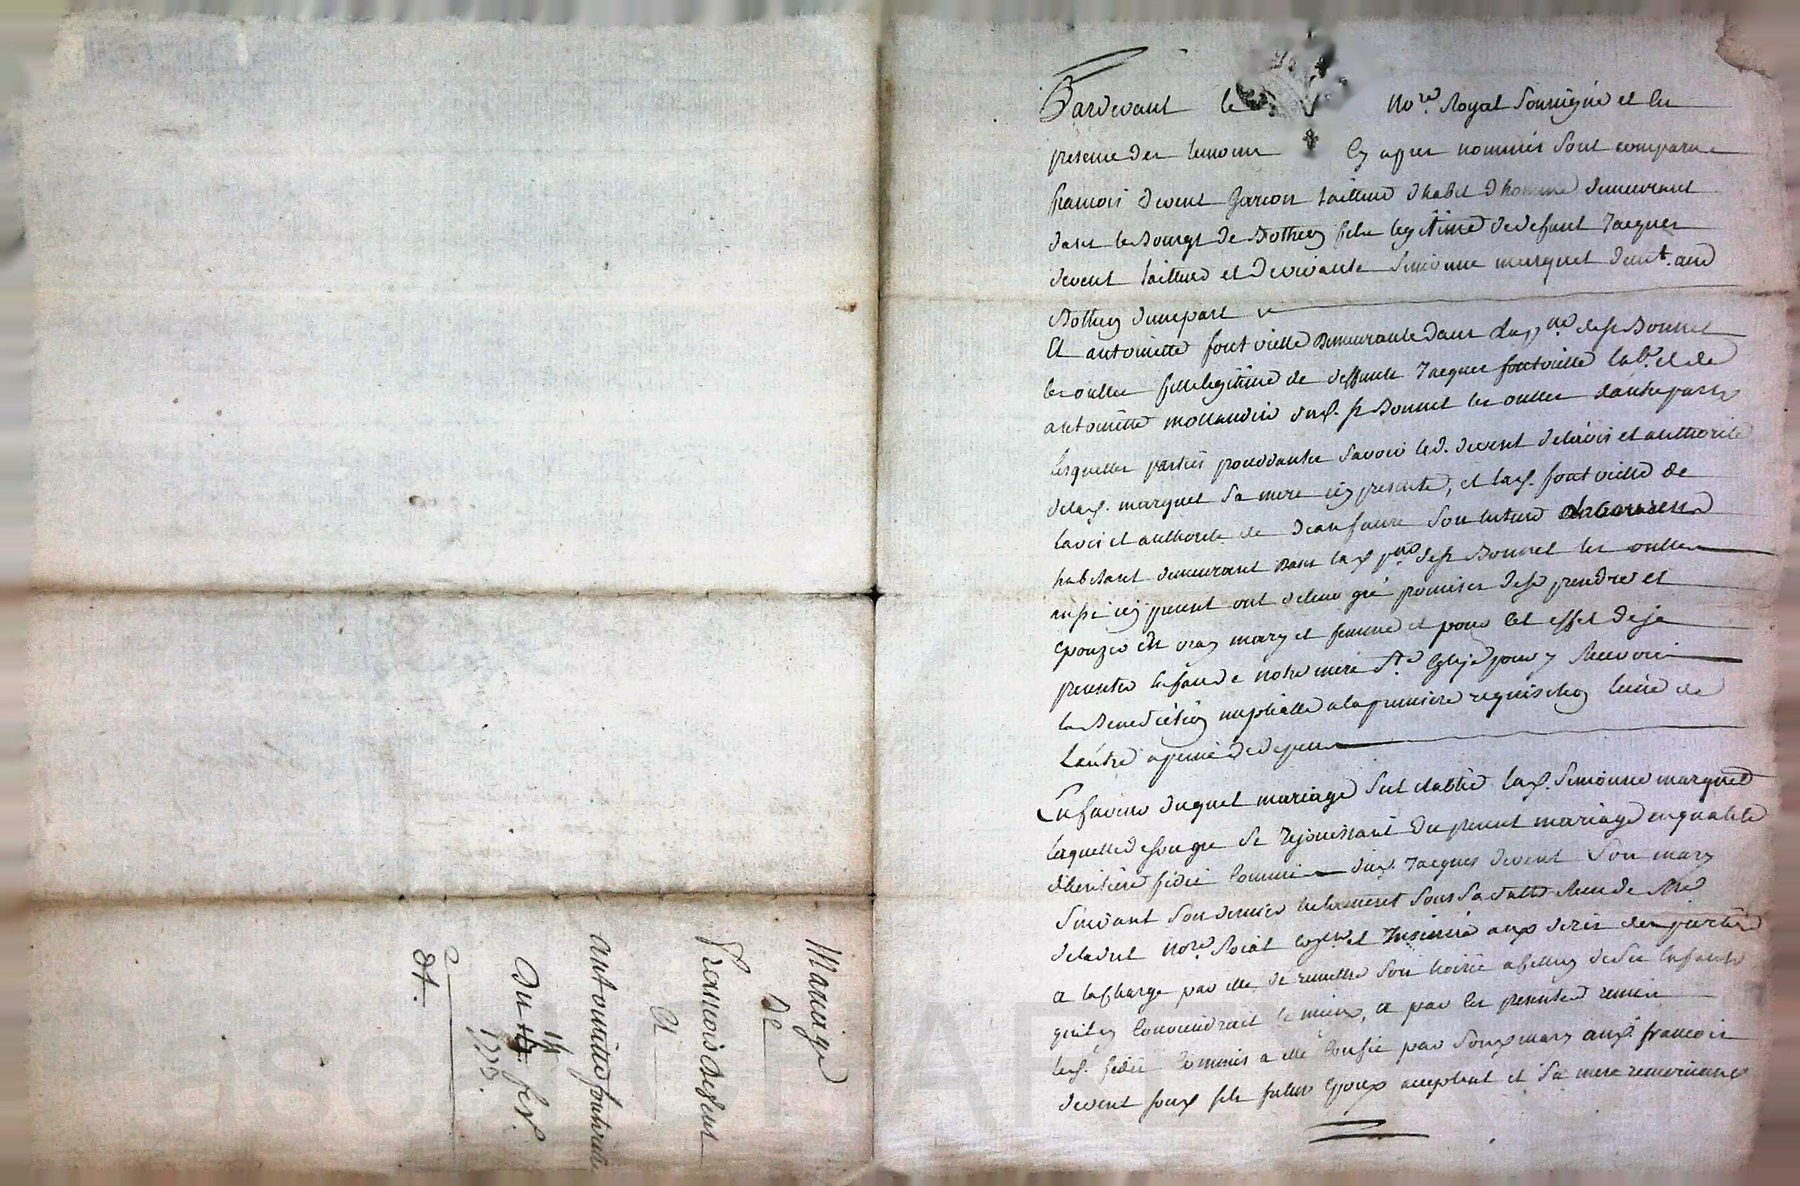 Pardevant le no.re Royal Soussigné et En
presence des temoins Cy apres nommés sont comparu
francois devent garcon tailleur d'habit d'homme demeurant
dans le Bourg de Botheon fils legitime de defunt Jacques
devent tailleur et de vivante Simonne marquet dem.t aud
Botheon d'une part
Et antoinette fontvielle demeurante dans la p.sse de s.t Bonnet
les oulles fille legitime de deffunt Jacques fontvielle lab.r et de
antoinette mollandin dud. s.t Bonnet les oulles d'autre part
lesquelles parties procedantes savoir led. devent de lavis et authorité
de lad. marquet sa mere icy presente, et lad. fontvielle de
lavis et authorité de Jean faure son tuteur
habitant demeurant dans lad. p.sse de s.t Bonnet les oulles
aussi icy present ont de leur gré promis de se prendre et
epouzer en vray mary et femme et pour cet effet de se
presenter en face de notre mere S.te Eglise pour y Recevoir
la Benediction nuptialle a la premiere requisition l'un de
l'autre a peine de depens
En faveur duquel mariage s'est etablie lad. Simonne marquet
laquelle de son gré se rejouissant du present mariage en qualité
d'heritiere fidei commise dud. Jacques devent son mary
suivant son dernier testament sous sa datte Receu de M.e
no.re Roial et Insinué aux
a la charge par elle de remettre son hoirie a celluy de ses Enfants
quil luy conviendrait le mieux, a par les presentes remis
led. fidei commis a elle confié par son d. mary aud. francois
devent son d. fils futur Epoux acceptant et sa mere remerciant
Mariage
De
Francois devent
Et
antoinette fontvielle
Du 14 fev.
1773.